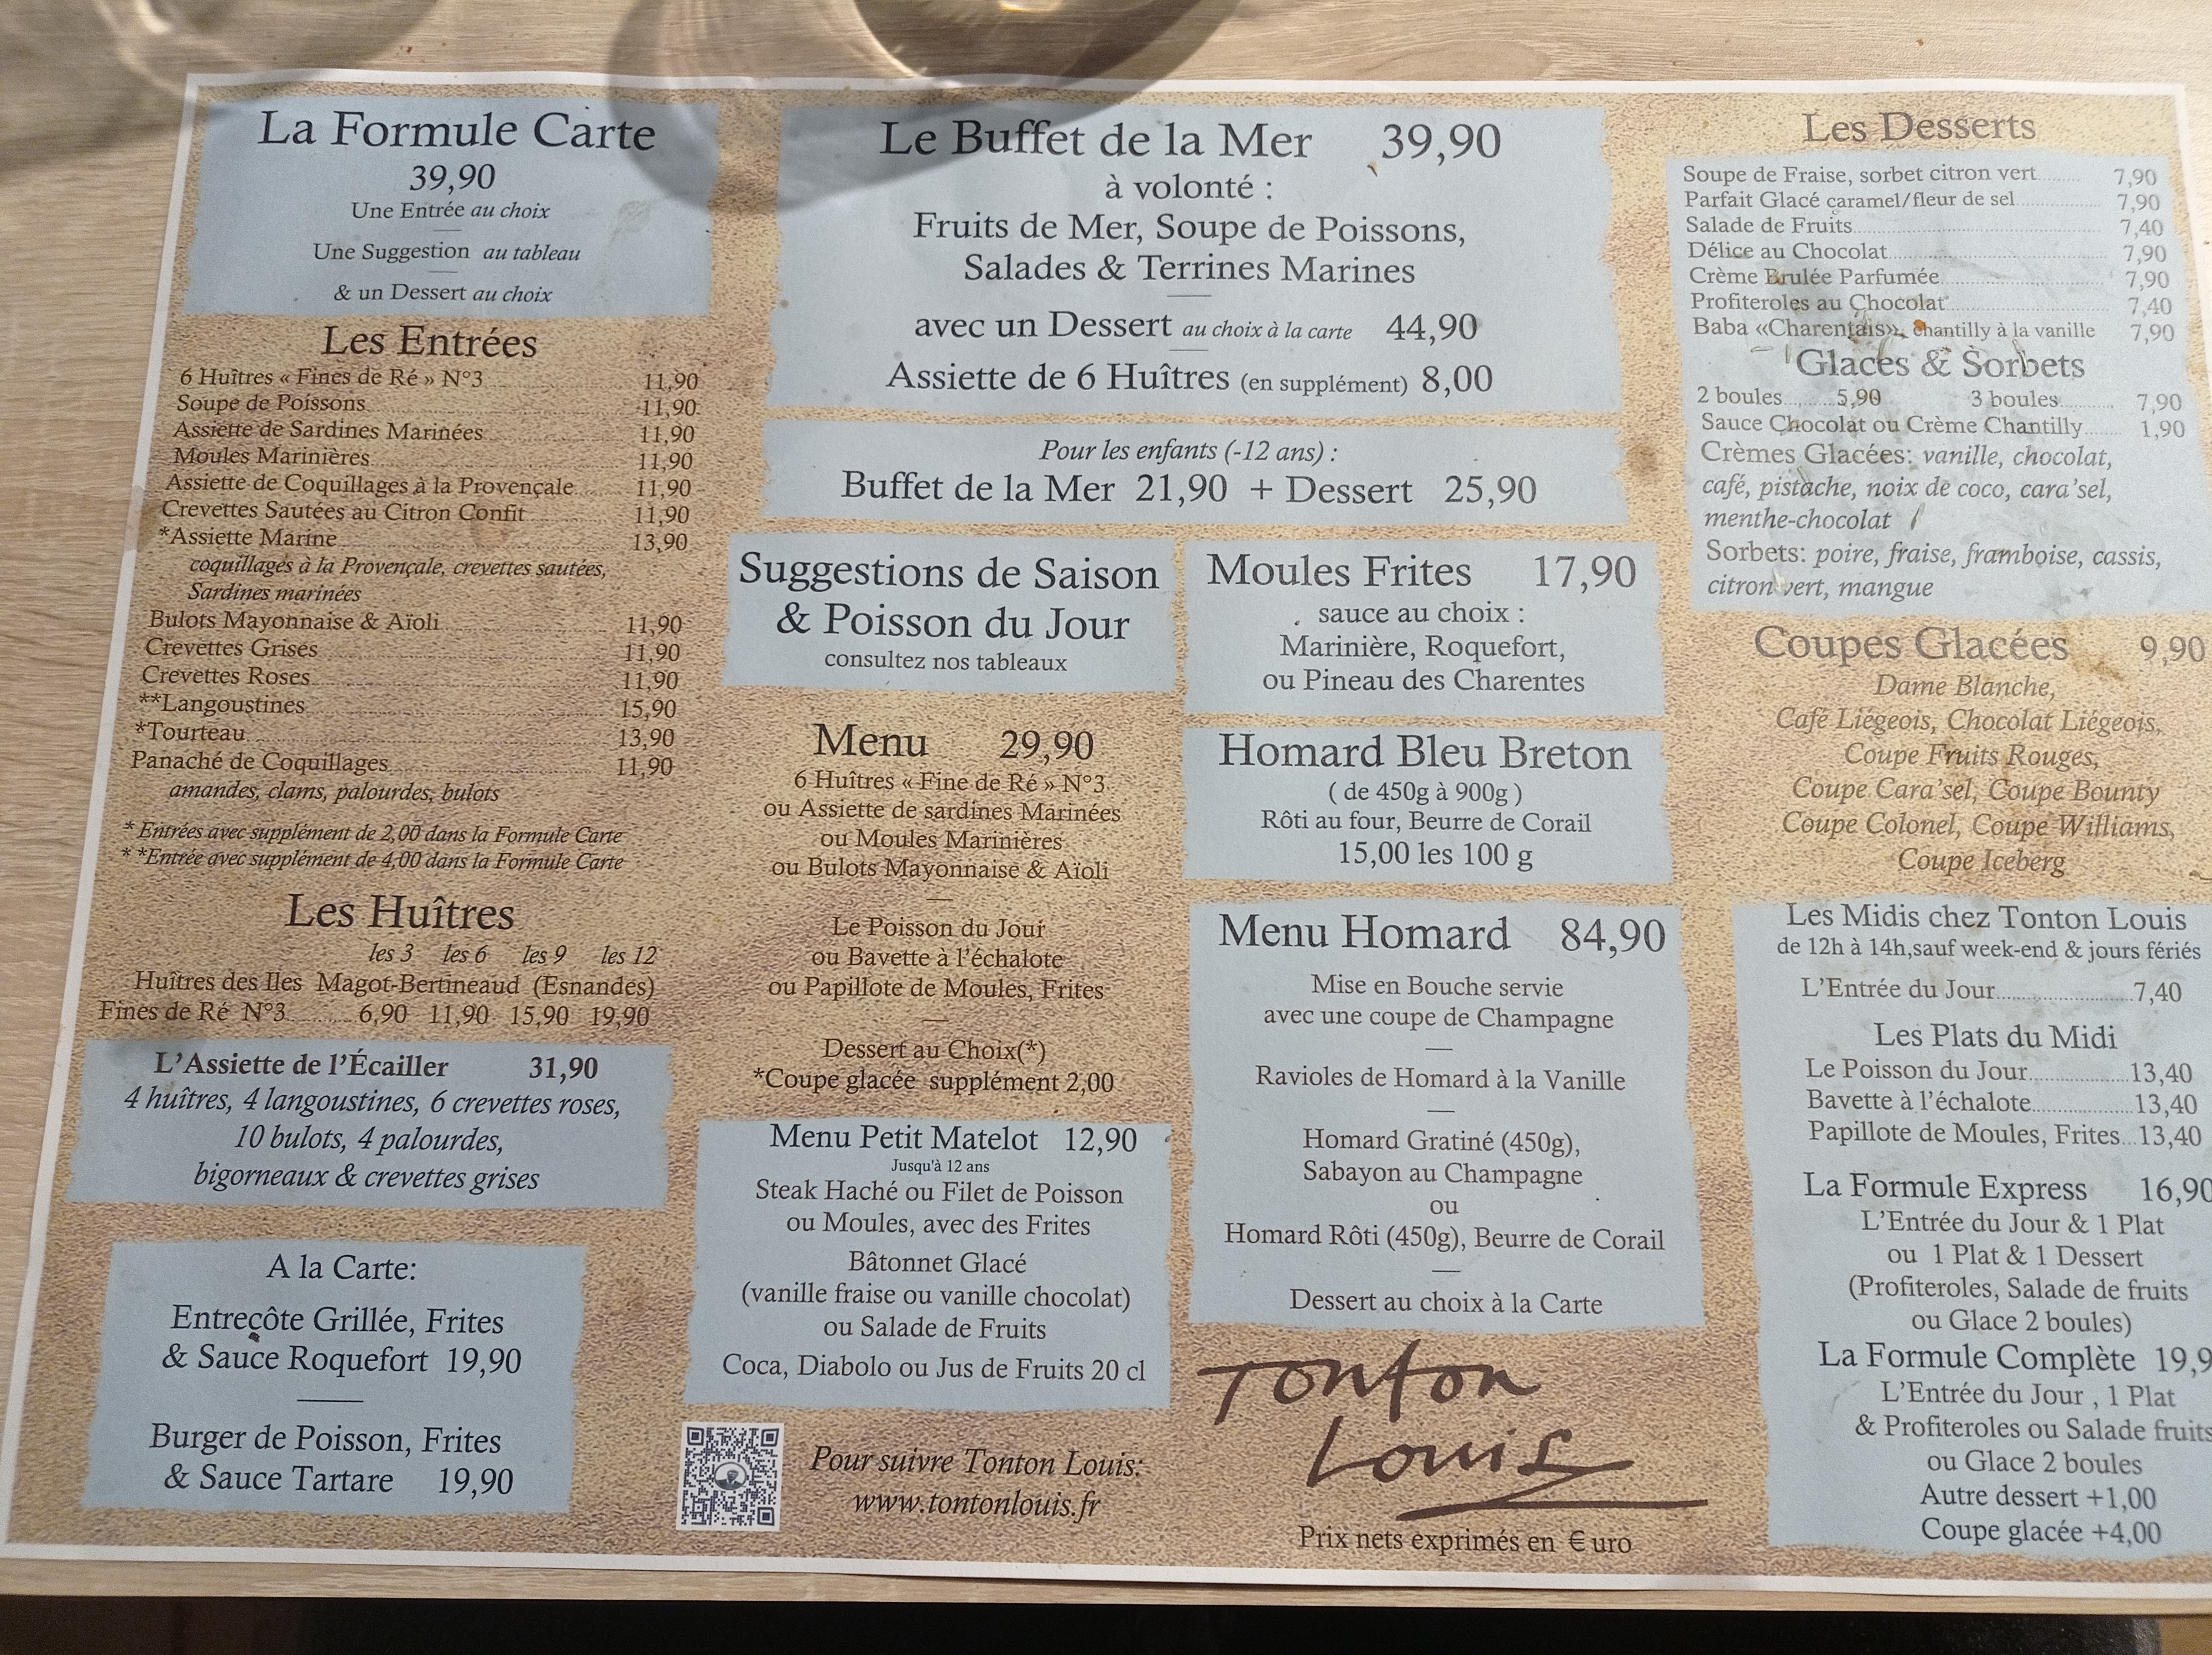 La Formule Carte
39,90
Une Entrée au choix
Une Suggestion au tableau
& un Dessert au choix
Les Entrées
6 Huîtres « Fines de Ré » N°3 11,90
Soupe de Poissons 11,90
Assiette de Sardines Marinées 11,90
Moules Marinières 11,90
Assiette de Coquillages à la Provençale 11,90
Crevettes Sautées au Citron Confit 11,90
*Assiette Marine 13,90
coquillages à la Provençale, crevettes sautées,
Sardines marinées
Bulots Mayonnaise & Aïoli 11,90
Crevettes Grises 11,90
Crevettes Roses 11,90
**Langoustines 15,90
*Tourteau 13,90
Panaché de Coquillages 11,90
amandes, clams, palourdes, bulots
* Entrées avec supplément de 2,00 dans la Formule Carte
* *Entrée avec supplément de 4,00 dans la Formule Carte
Les Huîtres
les 3 les 6 les 9 les 12
Huîtres des Iles Magot-Bertineaud (Esnandes)
Fines de Ré N°3 6,90 11,90 15,90 19,90
L'Assiette de l'Écailler 31,90
4 huîtres, 4 langoustines, 6 crevettes roses,
10 bulots, 4 palourdes,
bigorneaux & crevettes grises
A la Carte:
Entrecôte Grillée, Frites
& Sauce Roquefort 19,90
Burger de Poisson, Frites
& Sauce Tartare 19,90
Le Buffet de la Mer 39,90
à volonté :
Fruits de Mer, Soupe de Poissons,
Salades & Terrines Marines
avec un Dessert au choix à la carte 44,90
Assiette de 6 Huîtres (en supplément) 8,00
Pour les enfants (-12 ans) :
Buffet de la Mer 21,90 + Dessert 25,90
Suggestions de Saison
& Poisson du Jour
consultez nos tableaux
Menu 29,90
6 Huîtres « Fine de Ré » N°3
ou Assiette de sardines Marinées
ou Moules Marinières
ou Bulots Mayonnaise & Aïoli
Le Poisson du Jour
ou Bavette à l'échalote
ou Papillote de Moules, Frites
Dessert au Choix(*)
*Coupe glacée supplément 2,00
Menu Petit Matelot 12,90
Jusqu'à 12 ans
Steak Haché ou Filet de Poisson
ou Moules, avec des Frites
Bâtonnet Glacé
(vanille fraise ou vanille chocolat)
ou Salade de Fruits
Coca, Diabolo ou Jus de Fruits 20 cl
Pour suivre Tonton Louis:
www.tontonlouis.fr
Moules Frites 17,90
sauce au choix :
Marinière, Roquefort,
ou Pineau des Charentes
Homard Bleu Breton
( de 450g à 900g )
Rôti au four, Beurre de Corail
15,00 les 100 g
Menu Homard 84,90
Mise en Bouche servie
avec une coupe de Champagne
Ravioles de Homard à la Vanille
Homard Gratiné (450g),
Sabayon au Champagne
ou
Homard Rôti (450g), Beurre de Corail
Dessert au choix à la Carte
Tonton
Louis
Prix nets exprimés en €uro
Les Desserts
Soupe de Fraise, sorbet citron vert 7,90
Parfait Glacé caramel/fleur de sel 7,90
Salade de Fruits 7,40
Délice au Chocolat 7,90
Crème Brulée Parfumée 7,90
Profiteroles au Chocolat 7,40
Baba «Charentais», chantilly à la vanille 7,90
Glaces & Sorbets
2 boules 5,90 3 boules 7,90
Sauce Chocolat ou Crème Chantilly 1,90
Crèmes Glacées: vanille, chocolat,
café, pistache, noix de coco, cara'sel,
menthe-chocolat
Sorbets: poire, fraise, framboise, cassis,
citron vert, mangue
Coupes Glacées 9,90
Dame Blanche,
Café Liégeois, Chocolat Liégeois,
Coupe Fruits Rouges,
Coupe Cara'sel, Coupe Bounty
Coupe Colonel, Coupe Williams,
Coupe Iceberg
Les Midis chez Tonton Louis
de 12h à 14h,sauf week-end & jours fériés
L'Entrée du Jour 7,40
Les Plats du Midi
Le Poisson du Jour 13,40
Bavette à l'échalote 13,40
Papillote de Moules, Frites 13,40
La Formule Express 16,90
L'Entrée du Jour & 1 Plat
ou 1 Plat & 1 Dessert
(Profiteroles, Salade de fruits
ou Glace 2 boules)
La Formule Complète 19,9
L'Entrée du Jour , 1 Plat
& Profiteroles ou Salade fruits
ou Glace 2 boules
Autre dessert +1,00
Coupe glacée +4,00